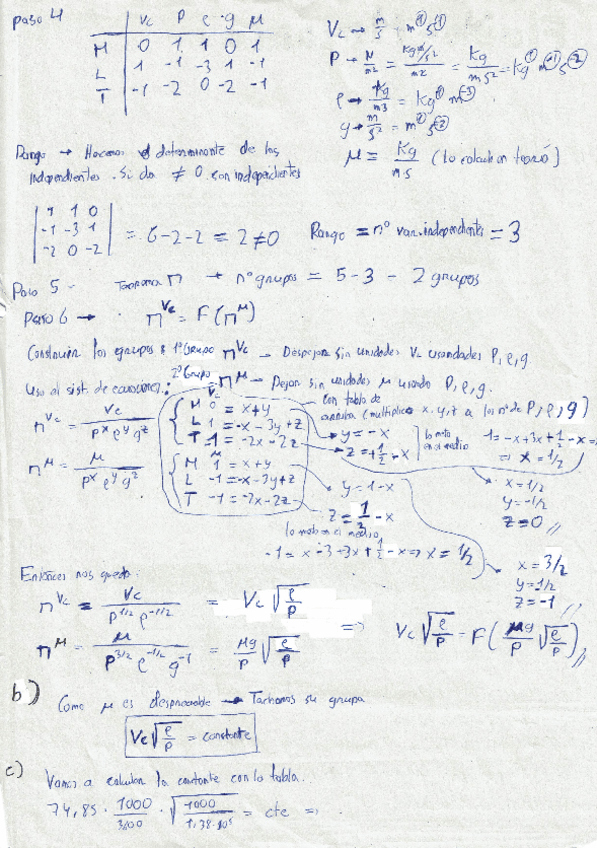 paso 4
Vc P ρ g μ
M 0 1 1 0 1
L 1 -1 -3 1 -1
T -1 -2 0 -2 -1
Vc → m/s = m^① s^(-1)
P → N/m2 = kg m/s² / m2 = Kg/ms² = kg^① m^(-1) s^(-2)
ρ → kg/m3 = kg^① m^(-3)
g → m/s² = m^① s^(-2)
μ = Kg/m·s (lo calculan teoría)
Rango → Hacemos el determinante de los
independientes. Si da ≠ 0 son independientes
| 1 1 0 |
| -1 -3 1 | = 6-2-2 = 2 ≠ 0 Rango = nº var. independientes = 3
| -2 0 -2 |
Paso 5 - Teorema π → nº grupos = 5-3 - 2 grupos
Paso 6 → π^Vc = F(π^μ)
Construir los grupos : 1º Grupo π^Vc → Despejar sin unidades Vc usando P, ρ, g.
2º Grupo π^μ → Dejar sin unidades μ usando P, ρ, g.
Uso al sist. de ecuaciones:
con tabla de
arriba (multiplico x, y, z a los nº de P, ρ, g)
π^Vc = Vc / P^x ρ^y g^z
Vc
M 0 = x+y
L 1 = -x-3y+z
T -1 = -2x-2z
y = -x
z = +1/2 - x
lo meto en el medio
1 = -x+3x+1/2-x
=> x = 1/2
x = 1/2
y = -1/2
z = 0 //
π^μ = μ / P^x ρ^y g^z
μ
M 1 = x+y
L -1 = -x-3y+z
T -1 = -2x-2z
y = 1-x
z = 1/2 - x
lo meto en el medio
-1 = x-3+3x+1/2-x => x = 1/2
x = 3/2
y = -1/2
z = -1 //
Entonces nos queda:
π^Vc = Vc / P^1/2 ρ^-1/2 = Vc √(ρ/P)
π^μ = μ / P^3/2 ρ^-1/2 g^-1 = μg/P √(ρ/P) => Vc √(ρ/P) = F(μg/P √(ρ/P)) //
b) Como μ es despreciable → Tachamos su grupo
Vc √(ρ/P) = constante
c) Vamos a calcular la constante con la tabla.
74,85 · 1000/3600 · √(1000/1,38·10⁵) = cte =>